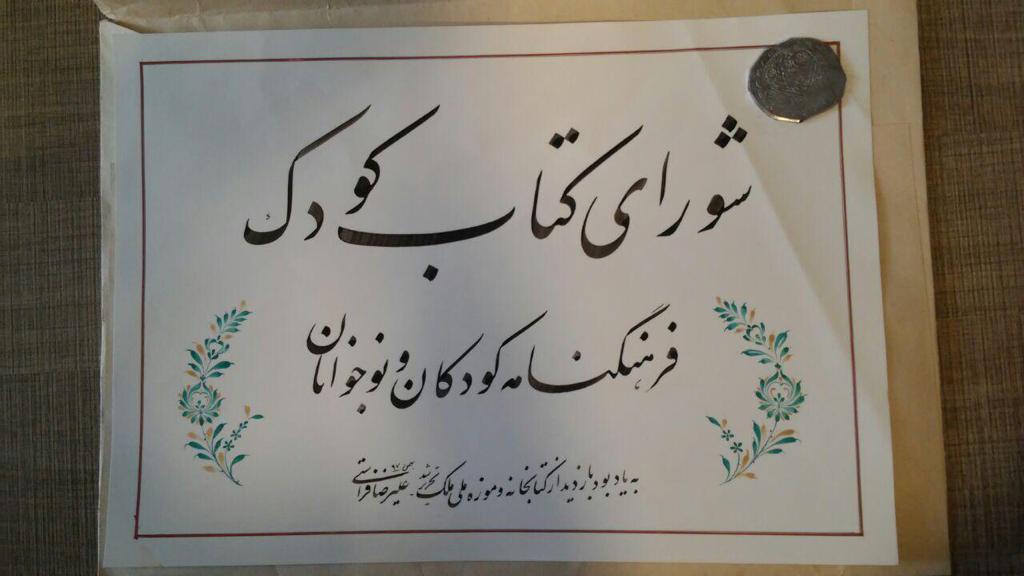 شورای کتاب کودک
فرهنگنامه کودکان و نوجوانان
به یادبود بازدید از کتابخانه و موزه ملی ملک تحریر شد علیرضا